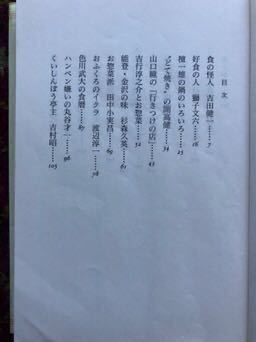 目次
食の怪人 吉田健一……7
好食の人 獅子文六……16
檀一雄の鍋のいろいろ……25
“どて焼き”の開高健……34
山口瞳の『行きつけの店』……43
吉行淳之介とお惣菜……52
能登・金沢の味 杉森久英……61
お惣菜派 田中小実昌……69
おふくろのイクラ 渡辺淳一……78
色川武大の食暦……87
ハンペン嫌いの丸谷才一……96
くいしんぼう亭主 吉村昭……105